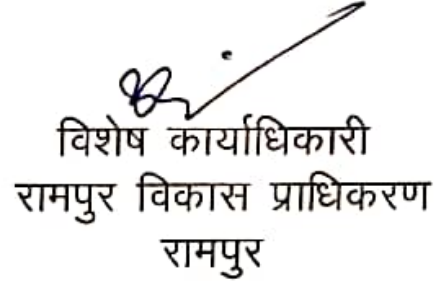 विशेष कार्याधिकारी
रामपुर विकास प्राधिकरण
रामपुर